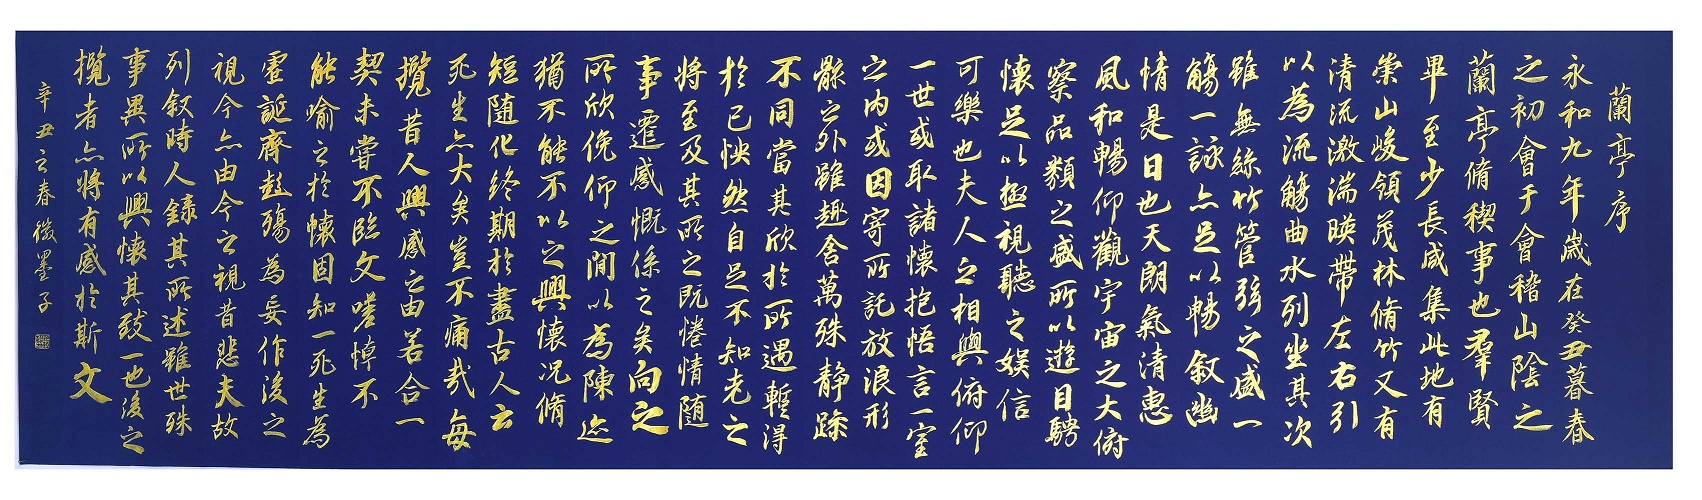 蘭亭序
永和九年歲在癸丑暮春
之初會于會稽山陰之
蘭亭脩稧事也羣賢
畢至少長咸集此地有
崇山峻領茂林脩竹又有
清流激湍暎帶左右引
以為流觴曲水列坐其次
雖無絲竹管弦之盛一
觴一詠亦足以暢叙幽
情是日也天朗氣清惠
風和暢仰觀宇宙之大俯
察品類之盛所以遊目騁
懷足以極視聽之娱信
可樂也夫人之相與俯仰
一世或取諸懷抱悟言一室
之内或因寄所託放浪形
骸之外雖趣舍萬殊静躁
不同當其欣於所遇暫得
於己怏然自足不知老之
將至及其所之既惓情随
事遷感慨係之矣向之
所欣俛仰之間以為陳迹
猶不能不以之興懷况脩
短随化終期於盡古人云
死生亦大矣豈不痛哉每
攬昔人興感之由若合一
契未嘗不臨文嗟悼不
能喻之於懷固知一死生為
虛誕齊彭殤為妄作後之
視今亦由今之視昔悲夫故
列叙時人錄其所述雖世殊
事異所以興懷其致一也後之
攬者亦將有感於斯文
辛丑之春墨子